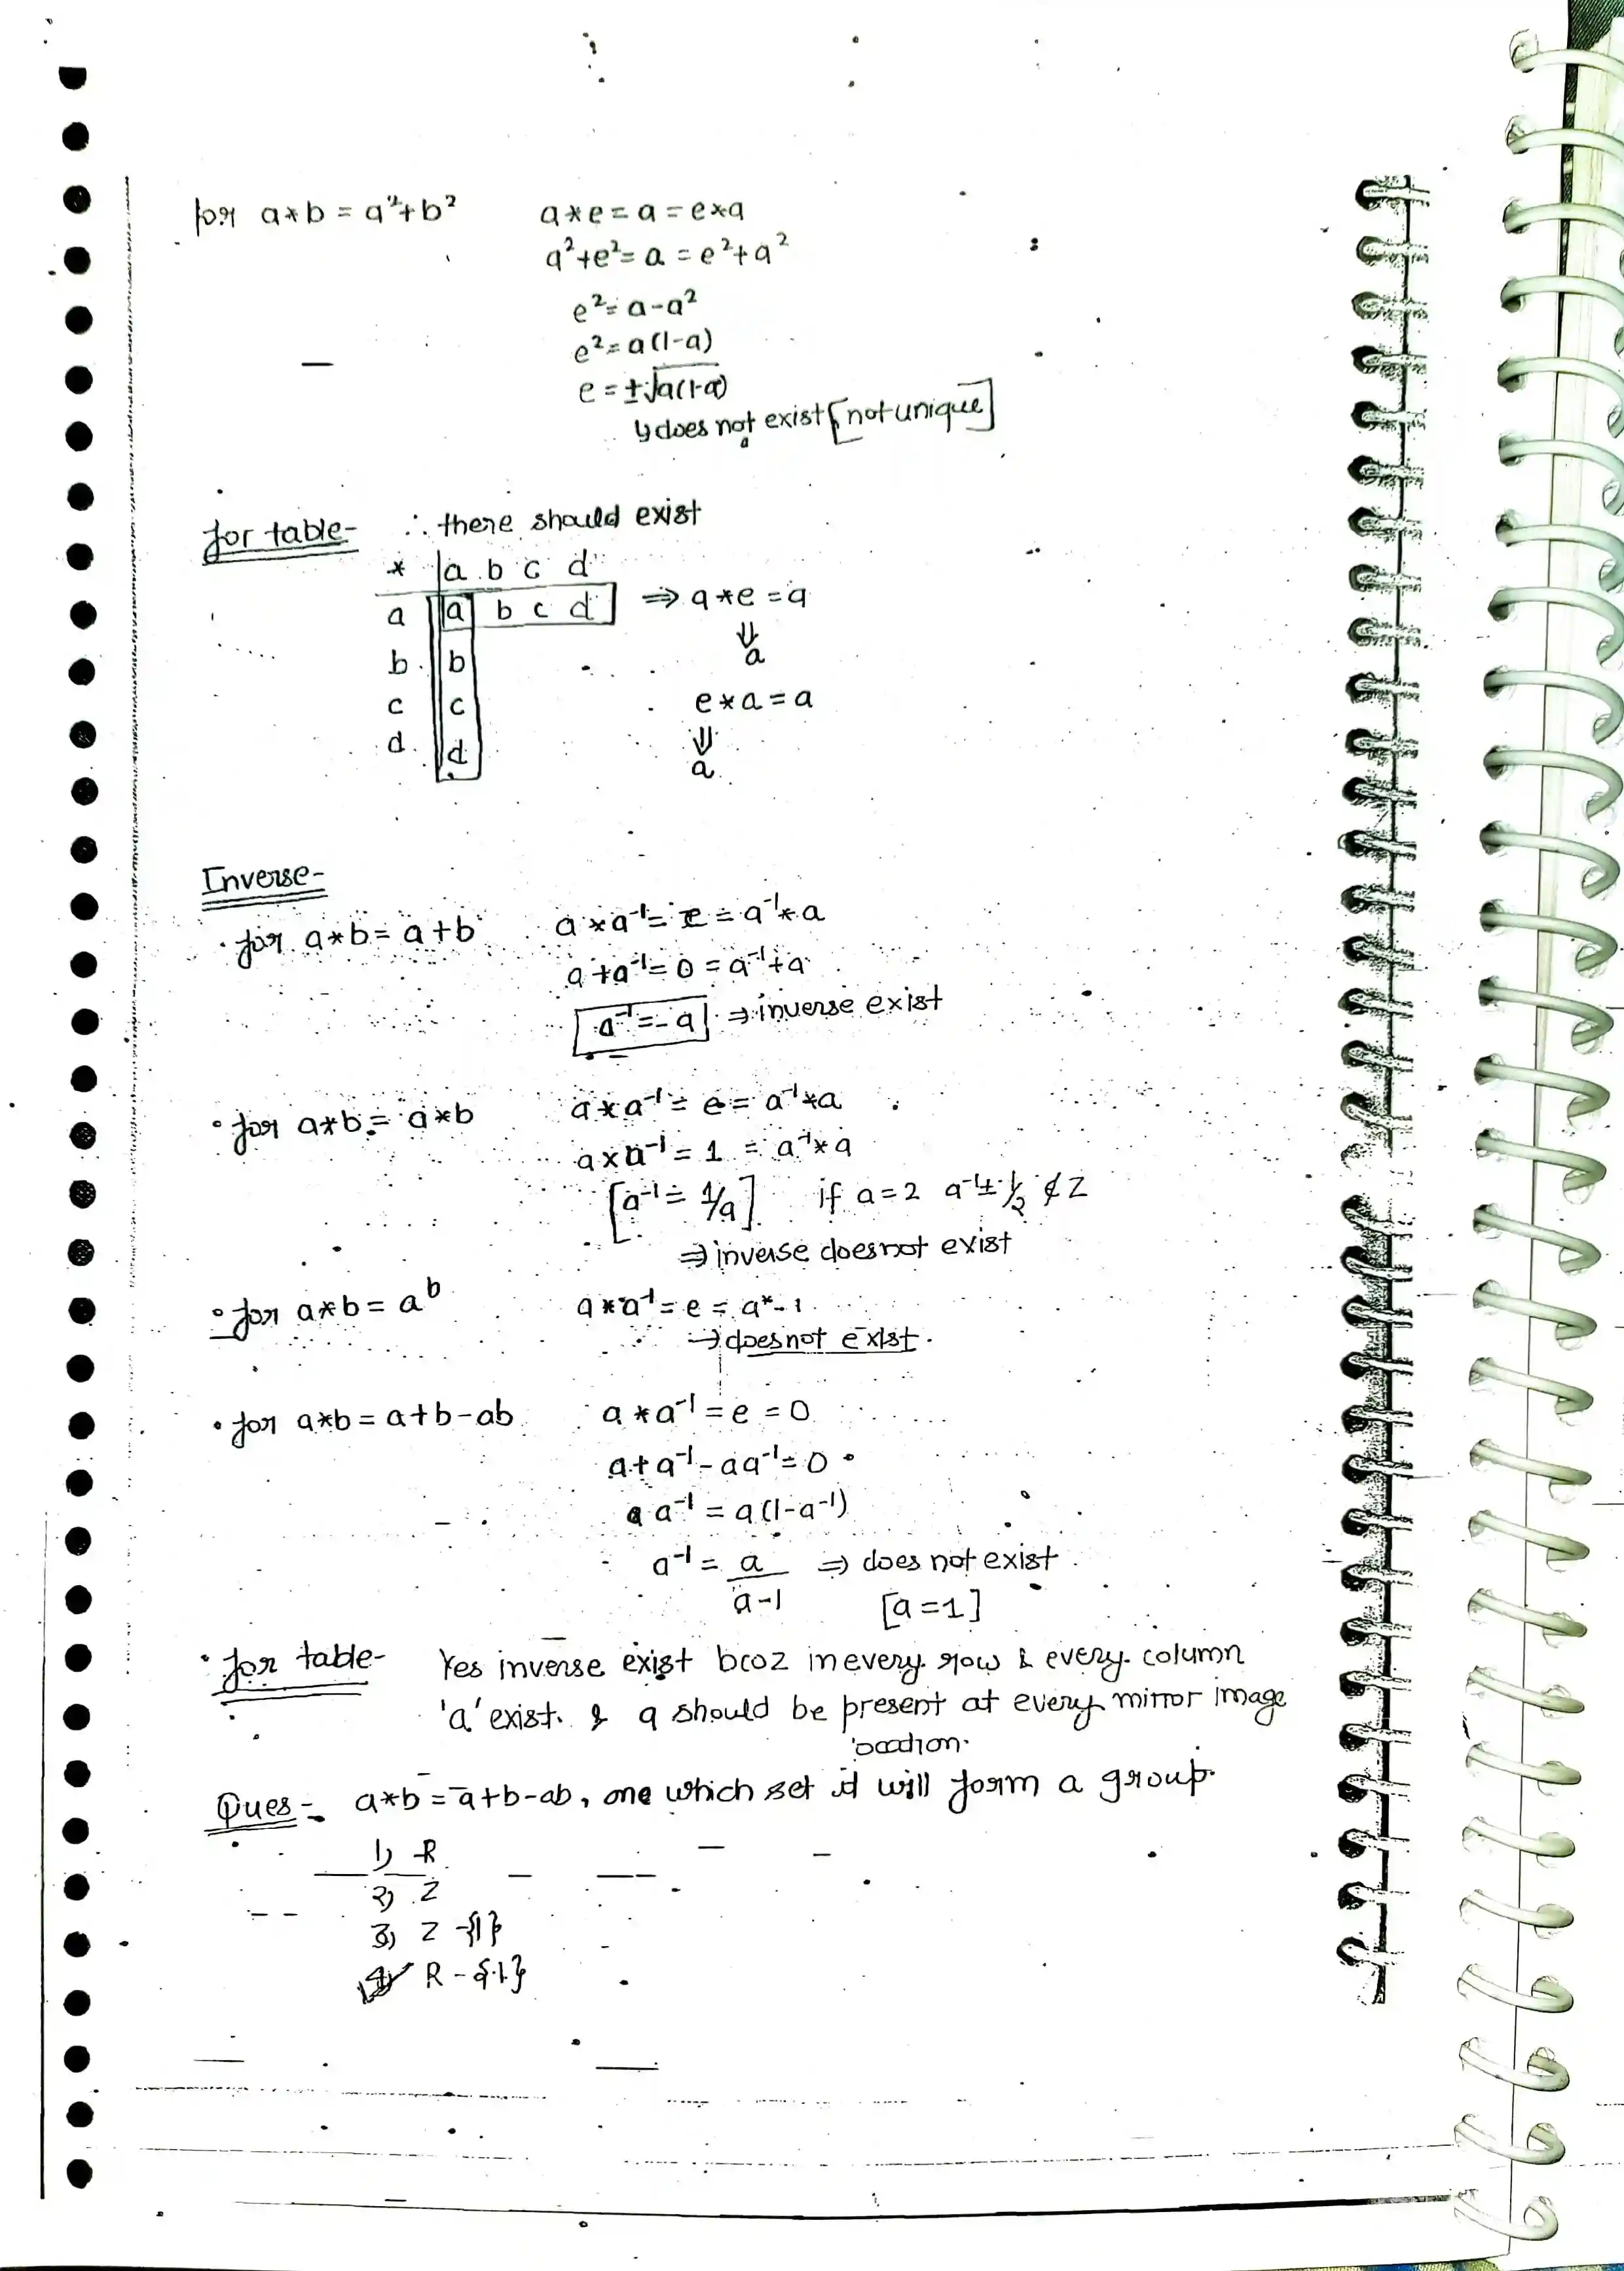 for a*b = a²+b² a*e = a = e*a
a²+e² = a = e²+a²
e² = a-a²
e² = a(1-a)
e = ±√a(1-a)
↳ does not exist [not unique]
for table- ∴ there should exist
* a b c d
a a b c d ⇒ a*e = a
⇓
b b a
c c e*a = a
d d ⇓
a
Inverse-
• for a*b = a+b a*a⁻¹ = e = a⁻¹*a
a+a⁻¹ = 0 = a⁻¹+a
a⁻¹ = -a ⇒ inverse exist
• for a*b = a*b a*a⁻¹ = e = a⁻¹*a
a×a⁻¹ = 1 = a⁻¹*a
[a⁻¹ = 1/a] if a=2 a⁻¹ = 1/2 ∉ Z
⇒ inverse does not exist
• for a*b = aᵇ a*a⁻¹ = e = a*-1
→ does not exist.
• for a*b = a+b-ab a*a⁻¹ = e = 0
a+a⁻¹-aa⁻¹ = 0
a⁻¹ = a(1-a⁻¹)
a⁻¹ = a/a-1 ⇒ does not exist
[a=1]
• for table- Yes inverse exist bcoz in every row & every column
'a' exist. & a should be present at every mirror image
Ques- a*b = a+b-ab, one which set it will form a group.
1) R
2) Z
3) Z-{1}
4) R-{1}